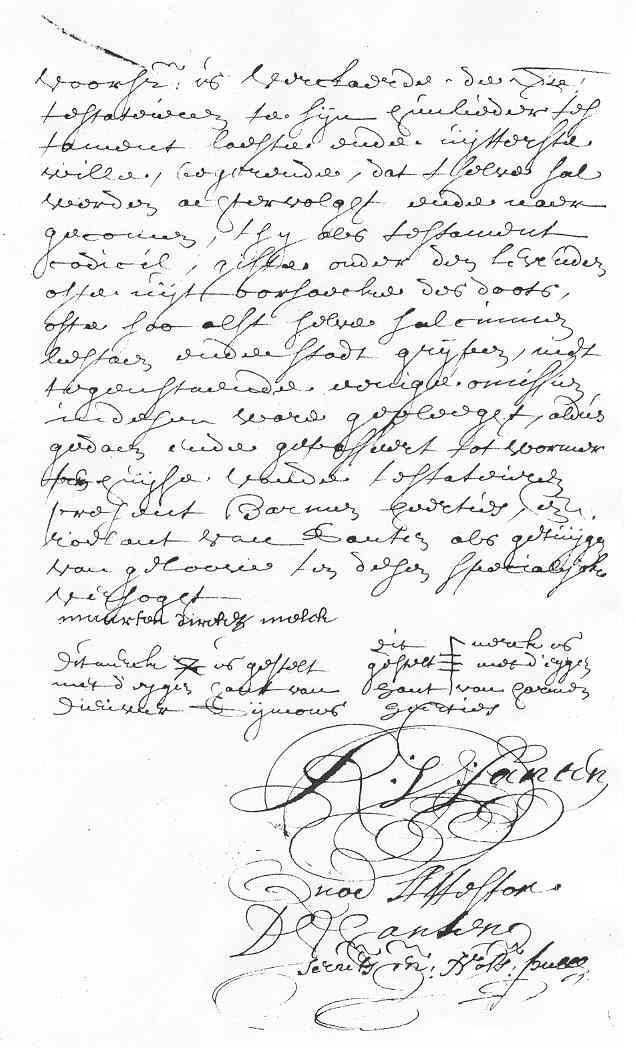 voorsz: is verclaerde de sze:
testateuren te sijn hunlieder tes
tament laeste ende uijtterste
wille, begerende, dat tselve sal
werden achtervolget ende naer
gecomen, tsy als testament
codicil, gifte onder den levenden
ofte uijt oorsaecke des doots,
ofte soo alst selve sal cunnen
bestaen ende stadt grijpen, niet
tegenstaende eenige omissien
in desen ware gepleeget, aldus
gedaen ende gepasseert tot Wormer
ten huijse vande testateuren
present Barmen Geerties, en
roelant van Santen als getuijge
van geloove tot desen specialijck
versogt
maerten dirckz molck
dit merck is gestelt
met d'eygen hant van
dieuwer Sijmons
dit merck is
gestelt met d'eygen
hant van harmen
geerties
R. V. Santen
quod Attestor
D V Santen
Secrets en: Nots: publ.